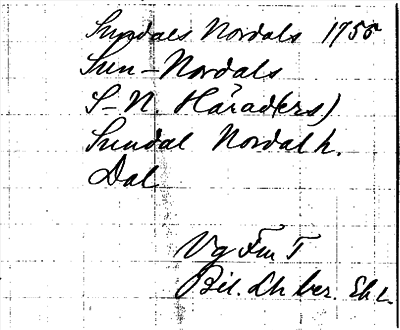 Sundals Nordals 1755
Sun-Nordals
S-N Härad(ers)
Sundal Nordal h.
Dal
Vg Fm T
Bil. Lh ber.